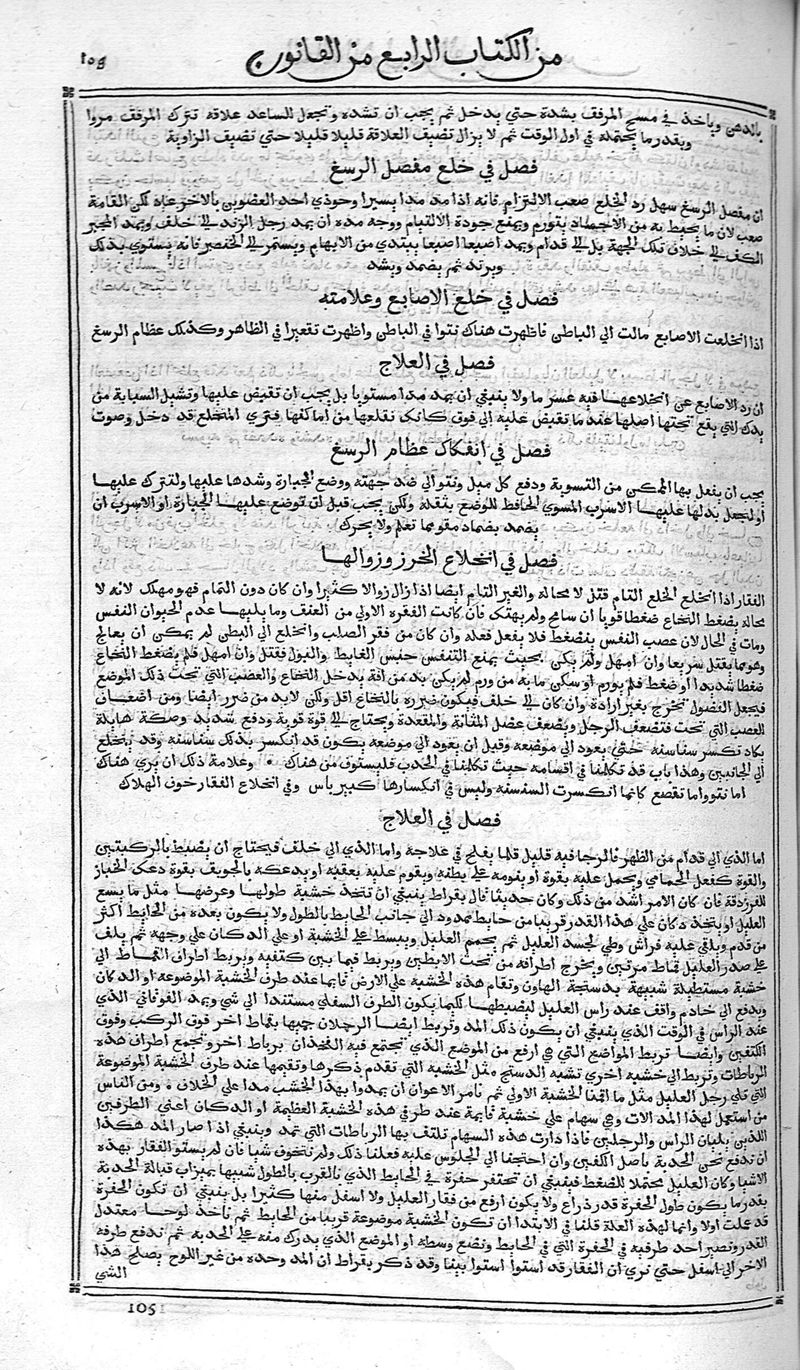 من الكتاب الرابع من القانون
بالدهن وياخذ في مسح المرفق بشدة حتي يدخل ثم يجب ان تشده وتجعل للساعد علاقه تترك المرفق مزوا
وبقدر ما يحتمله في اول الوقت ثم لا يزال تضيف العلاقة قليلا قليلا حتي تضيف الزاوية
فصل في خلع مفصل الرسغ
ان مفصل الرسغ سهل رد الخلع صعب الالتزام فانه اذا مد مدا يسيرا وحوذي احد العضوين بالاخر عاد لكن اقامة
صعب لان ما يحيط به من الاجساد يتورم ويمنع جودة الالتيام ووجه مده ان يمد رجل الزند الي خلف ويمد المجبر
الكف الي خلاف تلك الجهة بل الي قدام ويمد اصبعا اصبعا يبتدي من الابهام ويستمر الي الخنصر فانه يستوي بذلك
ويرتد ثم يضمد ويشد
فصل في خلع الاصابع وعلامته
اذا انخلعت الاصابع مالت الي الباطن فاظهرت هناك نتوا في الباطن واظهرت تقعيرا في الظاهر وكذلك عظام الرسغ
فصل في العلاج
ان رد الاصابع عن انخلاعها فيه عسر ما ولا ينبغي ان يمد مدا مستويا بل يجب ان تقبض عليها وتشيل السبابة من
يدك التي يقع تحتها اصلها عند ما تقبض عليه الي فوق كانك تقلعها من اماكنها فتري المتخلع قد دخل وصوت
فصل في انفكاك عظام الرسغ
يجب ان يفعل بها الممكن من التسوية ودفع كل ميل ونتو الي ضد جهته ووضع الجبارة وشدها عليها ولتترك عليها
او لتجعل بدلها عليها الاسرب المسوي الحافظ للوضع بثقله ولكن يجب قبل ان توضع عليها الجبارة او الاسرب ان
يضمد بضماد مقو مما تعلم ولا يحرك
فصل في انخلاع الخرز وزوالها
الفقار اذا انخلع الخلع التام قتل لا محالة والغير التام ايضا اذا زال زوالا كثيرا وان كان دون التمام فهو مهلك لانه لا
محاله يضغط النخاع ضغطا قويا ان سامح ولم يهتك فان كانت الفقره الاولي من العنف وما يليها عدم الحيوان النفس
ومات في الحال لان عصب النفس ينضغط فلا يفعل فعله وان كان من فقر الصلب وانخلع الي البطن لم يمكن ان يعالج
وهو مما يقتل سريعا وان امهل ولم يكن بحيث يمنع التنفس حبس الغايط والبول فقتل وان امهل فلم يضغط النخاع
ضغطا شديدا او ضغط فلم يورم او سكن ما به من ورم لم يكن بد من افة يدخل النخاع والعصب التي تحت ذلك الموضع
فيجعل الفضول تخرج بغير ارادة وان كان الي خلف فيكون ضرره بالنخاع اقل ولكن لا بد من ضرر ايضا ومن اضعاف
العصب التي تحت فتضعف الرجل ويضعف عضل المثانة والمقعدة ويحتاج الي قوة قوية ودفع شديد وصكة هايلة
يكاد تكسر سناسنه حتي يعود الي موضعه وقبل ان يعود الي موضعه يكون قد انكسر بذلك سناسنه وقد ينخلع
الي الجانبين وهذا باب قد تكلمنا في اقسامه حيث تكلمنا في الحدب فليستوف من هناك * وعلامة ذلك ان يري هناك
اما نتو واما تقصع كانما انكسرت السنسنه وليس في انكسارها كبير باس وفي انخلاع الفقار خوف الهلاك
فصل في العلاج
اما الذي الي قدام من الظهر فالرجا فيه قليل قلما يفلح في علاجة واما الذي الي خلف فيحتاج ان يضبط بالركبتين
والقوة كفعل الحمامي ويحمل عليه بقوة او يقومه علي بطنه ويقوم عليه بعقبه او يدعكه بالجوبق بقوة دعك الخباز
للفرزدقة فان كان الامر اشد من ذلك وكان حديثا قال بقراط ينبغي ان تتخذ خشبة طولها وعرضها مثل ما يسع
العليل او يتخذ دكان علي هذا القدر قريبا من حايط ممدود الي جانب الحايط بالطول ولا يكون بعده من الحايط اكثر
من قدم ويلقي عليه فراش وطي لجسد العليل ثم يحمم العليل ويبسط علي الخشبة او علي الدكان علي وجهه ثم يلف
علي صدر العليل قماط مرتين ويخرج اطرافه من تحت الابطين ويربط فيما بين كتفيه ويربط اطراف القماط الي
خشبة مستطيلة شبيهة بدستجة الهاون وتقام هذه الخشبة علي الارض قايما عند طرف الخشبة الموضوعه او الدكان
ويدفع الي خادم واقف عند راس العليل ليضبطها لكيما يكون الطرف السفلي مستندا الي شي ويمد الفوقاني الذي
عند الراس في الوقت الذي ينبغي ان يكون ذلك المد وتربط ايضا الرجلان جميعا بقماط اخر فوق الركب وفوق
الكتفين وايضا تربط المواضع التي هي ارفع من الموضع الذي تجتمع فيه الفخدان برباط اخر وتجمع اطراف هذه
الرباطات وتربط الي خشبة اخري تشبه الدستج مثل الخشبة التي تقدم ذكرها وتقيمها عند طرف الخشبة الموضوعة
التي تلي رجل العليل مثل ما اقمنا الخشبة الاولي ثم نامر الاعوان ان يمدوا بهذا الخشب مدا علي الخلاف * ومن الناس
من استعمل لهذا المد الات وهي سهام علي خشبة قايمة عند طرفي هذه الخشبة العظيمة او الدكان اعني الطرفين
اللذين يليان الراس والرجلين فاذا دارت هذه السهام تلتف بها الرباطات التي تمد وينبغي اذا صار المد هكذا
ان ندفع نحن الحدبة باصل الكفين وان احتجنا الي الجلوس عليه فعلنا ذلك ولم نتخوف شيا فان لم يستو الفقار بهذه
الاشيا وكان العليل محتملا للضغط فينبغي ان تحتفر حفرة في الحايط الذي بالقرب بالطول شبيها بميزاب قبالة الحدبة
بقدر ما يكون طول الحفرة قدر ذراع ولا يكون ارفع من فقار العليل ولا اسفل منها كثيرا بل ينبغي ان تكون الحفرة
قد عملت اولا وانما لهذه العلة قلنا في الابتدا ان تكون الخشبة موضوعة قريبا من الحايط ثم ناخذ لوحا معتدل
القدر ونصير احد طرفيه في الحفرة التي في الحايط ونضع وسطه او الموضع الذي يدرك منه علي الحدبه ثم ندفع طرفه
الاخر الي اسفل حتي نري ان الفقار قد استوا استوا بينا وقد ذكر بقراط ان المد وحده من غير اللوح يصلح هذا
الشي
105